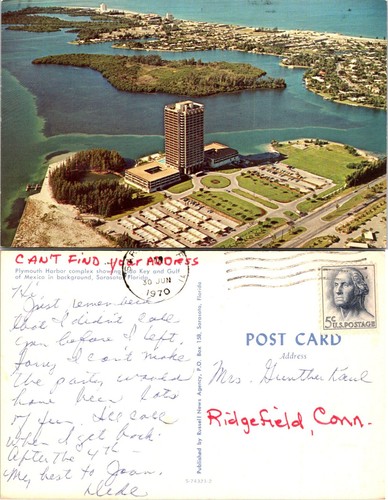 CAN'T FIND your ADDRESS
Plymouth Harbor complex showing Lido Key and Gulf
of Mexico in background, Sarasota, Florida.
30 JUN
1970
5¢ U.S. POSTAGE
Hi,
Just remembered
that I didn't call
you before I left.
Sorry I can't make
the party, would
have been lots
of fun. I'll call
when I get back
after the 4th –
My best to Joan.
Dede
Published by Russell News Agency, P.O. Box 138, Sarasota, Florida
POST CARD
Address
Mrs. Gunther Kaul
Ridgefield, Conn.